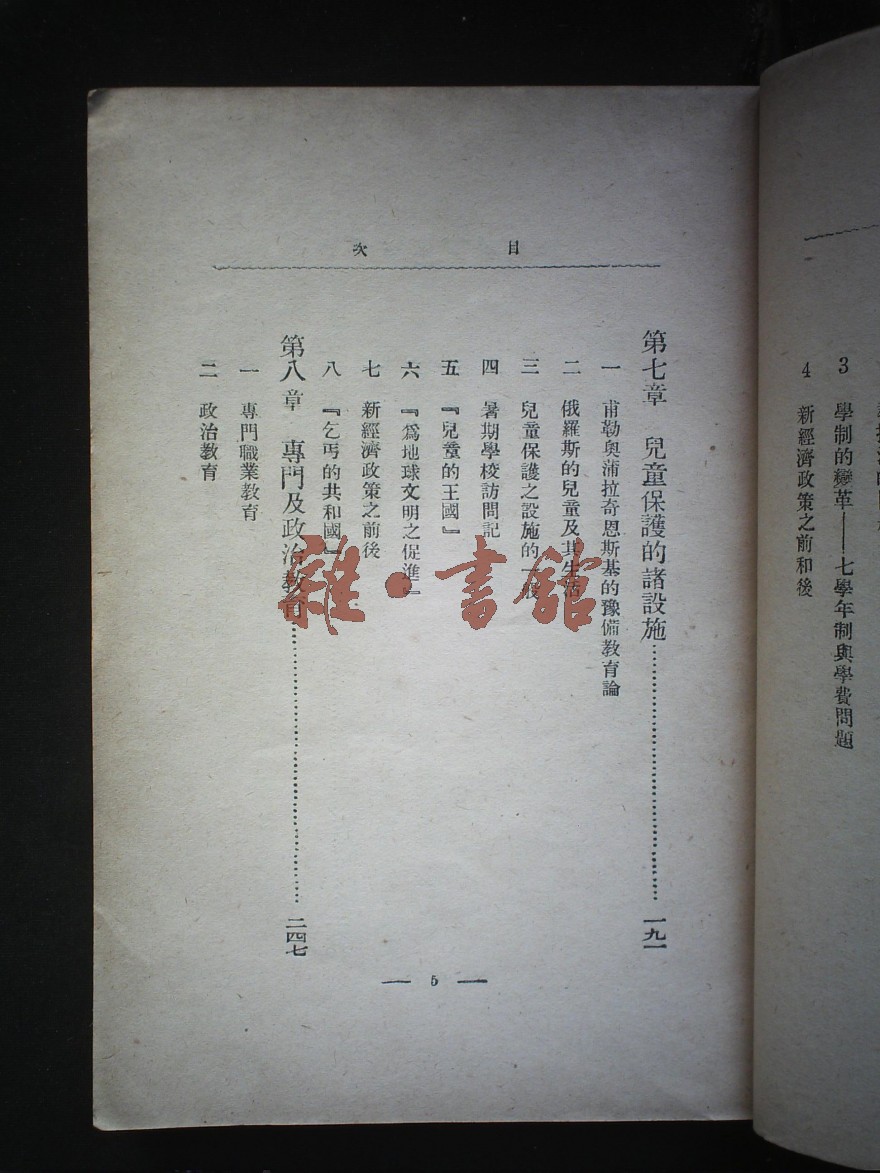 目次
第七章 兒童保護的諸設施 一九一
一 甫勒奧蒲拉奇恩斯基的豫備教育論
二 俄羅斯的兒童及其生活
三 兒童保護之設施的一般
四 暑期學校訪問記
五 『兒童的王國』
六 『爲地球文明之促進』
七 新經濟政策之前後
八 『乞丐的共和國』
第八章 專門及政治教育 二四七
一 專門職業教育
二 政治教育
— 5 —
3 學制的變革——七學年制與學費問題
4 新經濟政策之前和後
雜·書館